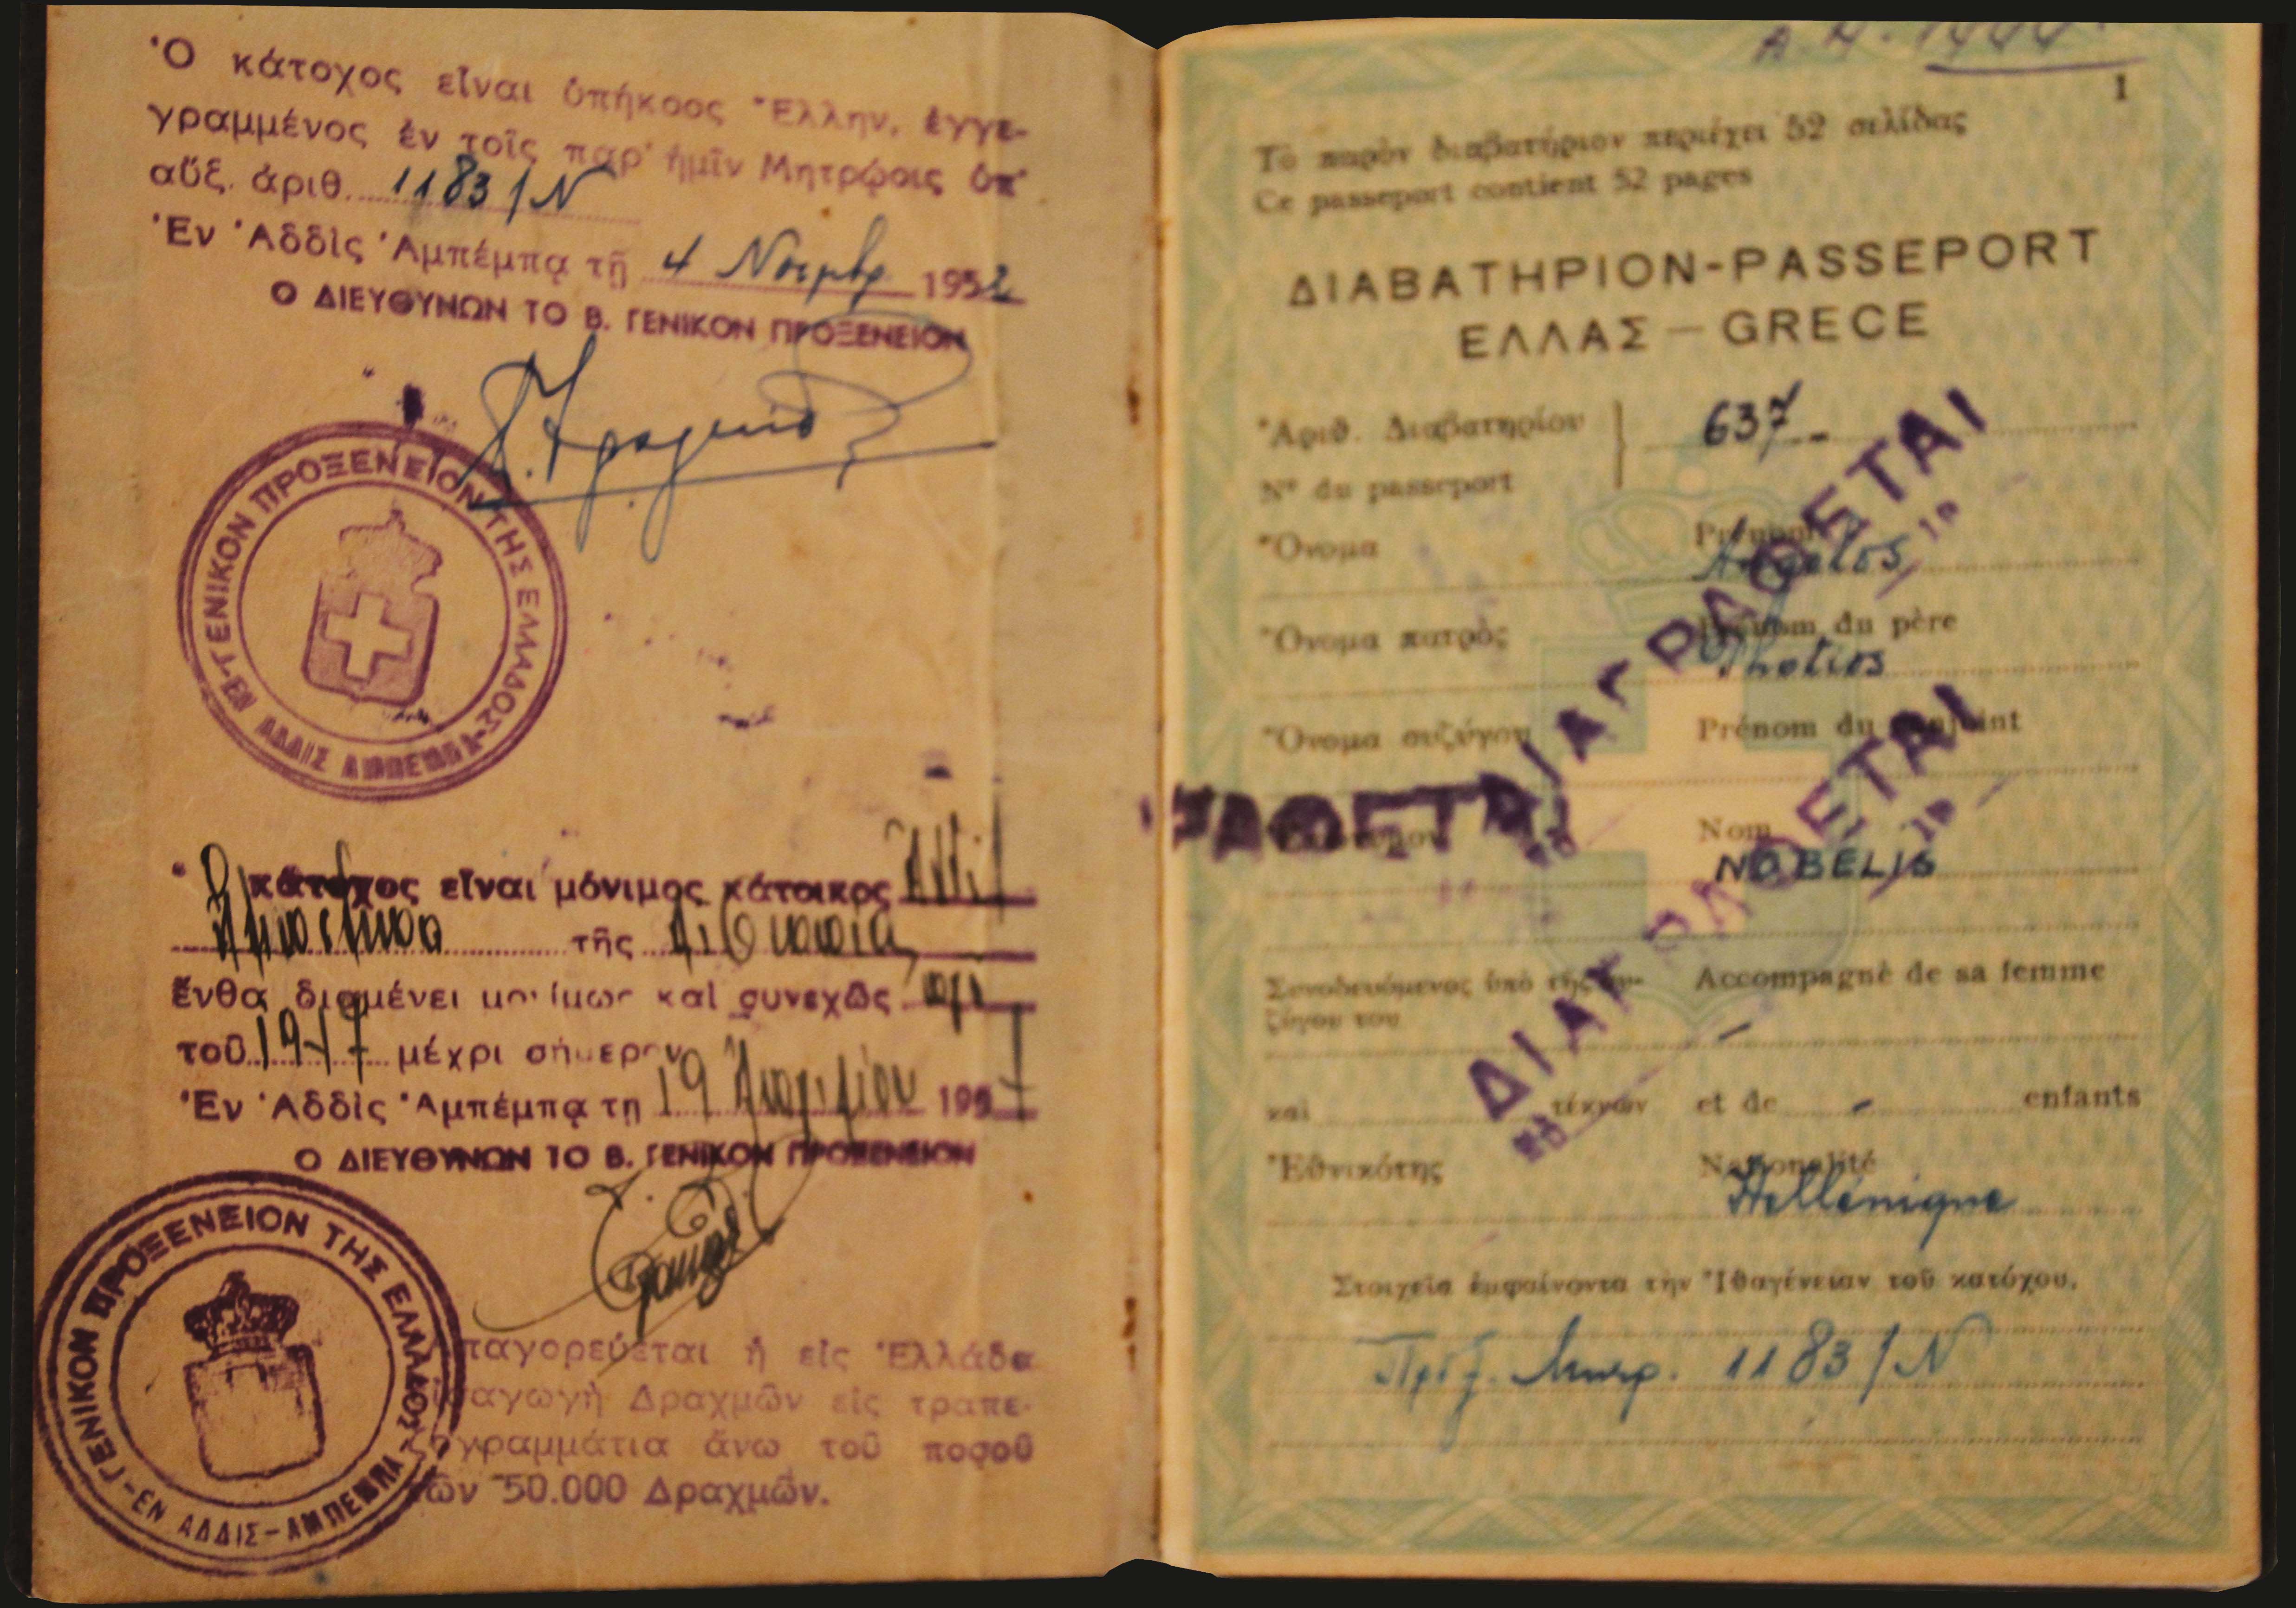 Ὁ κάτοχος εἶναι ὑπήκοος Ἕλλην, ἐγγε-
γραμμένος ἐν τοῖς παρ' ἡμῖν Μητρῴοις ὑπ'
αὔξ. ἀριθ. 1183/N
Ἐν Ἀδδὶς Ἀμπέμπᾳ τῇ 4 Νοεμβρ 1952
Ο ΔΙΕΥΘΥΝΩΝ ΤΟ Β. ΓΕΝΙΚΟΝ ΠΡΟΞΕΝΕΙΟΝ
ΓΕΝΙΚΟΝ ΠΡΟΞΕΝΕΙΟΝ ΤΗΣ ΕΛΛΑΔΟΣ
-ΕΝ ΑΔΔΙΣ ΑΜΠΕΜΠΑ-
κάτοχος εἶναι μόνιμος κάτοικος
τῆς
ἔνθα διαμένει μονίμως καὶ συνεχῶς ἀπὸ
τοῦ μέχρι σήμερον
Ἐν Ἀδδὶς Ἀμπέμπᾳ τῃ 19 195
Ο ΔΙΕΥΘΥΝΩΝ ΤΟ Β. ΓΕΝΙΚΟΝ ΠΡΟΞΕΝΕΙΟΝ
ΓΕΝΙΚΟΝ ΠΡΟΞΕΝΕΙΟΝ ΤΗΣ ΕΛΛΑΔΟΣ
-ΕΝ ΑΔΔΙΣ-ΑΜΠΕΜΠΑ
παγορεύεται ἡ εἰς Ἑλλάδα
αγωγὴ Δραχμῶν εἰς τραπε-
γραμμάτια ἄνω τοῦ ποσοῦ
τῶν 50.000 Δραχμῶν.
1
Τὸ παρὸν διαβατήριον περιέχει 52 σελίδας
Ce passeport contient 52 pages
ΔΙΑΒΑΤΗΡΙΟΝ-PASSEPORT
ΕΛΛΑΣ — GRECE
Ἀριθ. Διαβατηρίου
637
Nº du passeport
Ὄνομα Prénom
Angelos
Ὄνομα πατρὸς Prénom du père
Photios
Ὄνομα συζύγου Prénom du conjoint
Nom
NOBELIS
Συνοδευόμενος ὑπὸ τῆς συ- Accompagné de sa femme
ζύγου του
—
καὶ τέκνων et de - enfants
Ἐθνικότης Nationalité
Hellénique
Στοιχεῖα ἐμφαίνοντα τὴν Ἰθαγένειαν τοῦ κατόχου.
1183/N
ΔΙΑΓΡΑΦΕΤΑΙ
ΡΑΦΕΤΑΙ
ΔΙΑΓΡΑΦΕΤΑΙ